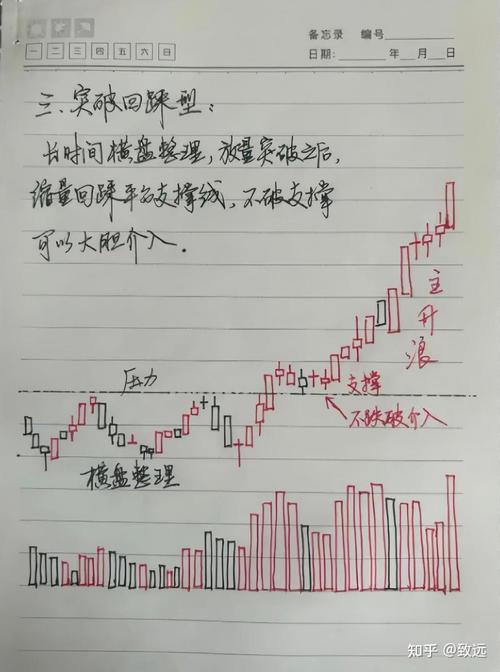 备忘录 编号
一 二 三 四 五 六 日
日期： 年 月 日
三、突破回踩型：
长时间横盘整理，放量突破之后，
缩量回踩平台支撑线，不破支撑
可以大胆介入．
主升浪
压力
支撑
不跌破介入
横盘整理
知乎 @致远